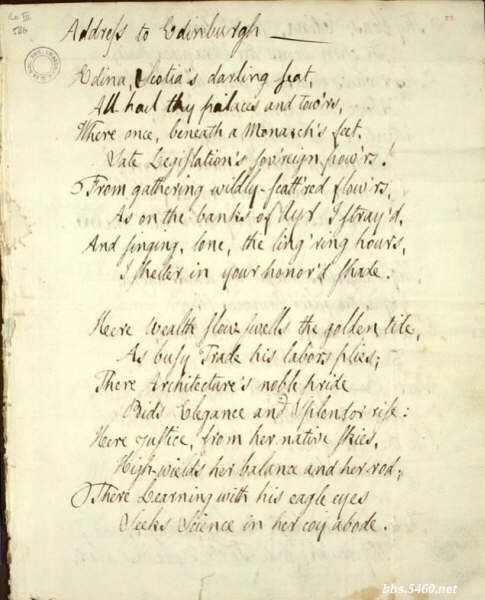 Address to Edinburgh
Edina, Scotia's darling seat,
All hail thy palaces and tow'rs,
Where once, beneath a Monarch's feet,
Sate Legislation's sov'reign pow'rs!
From gathering wildly-scatt'red flow'rs,
As on the banks of Ayr I stray'd,
And singing, lone, the ling'ring hours,
I shelter in your honor'd shade.
Here Wealth swells the golden tide,
As busy Trade his labors plies;
There Architecture's noble pride
Bids Elegance and Splendor rise:
Here Justice, from her native skies,
High wields her balance and her rod;
There Learning with his eagle eyes
Seeks Science in her coy abode.
bbs.5460.net